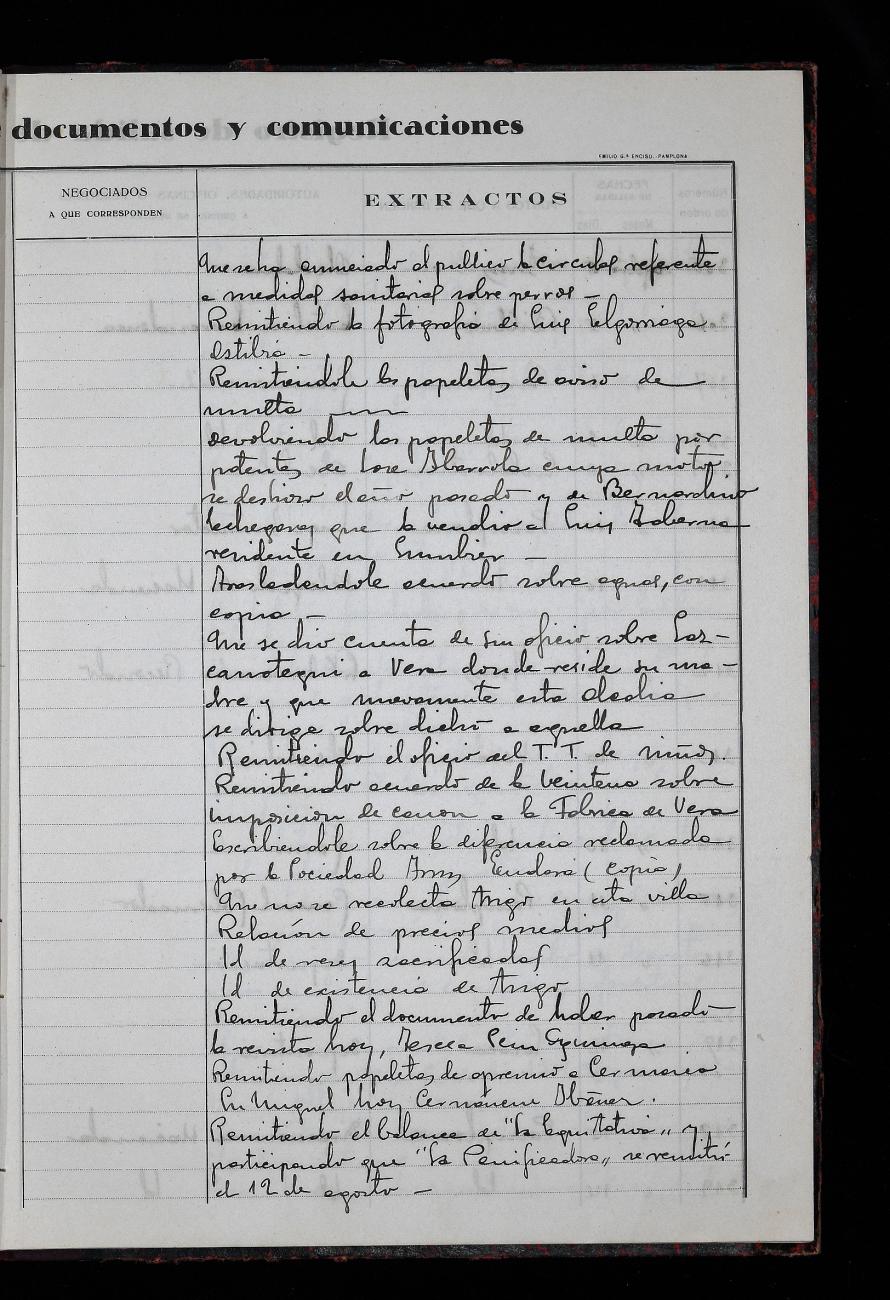 documentos y comunicaciones
EMILIO G.ª ENCISO.-PAMPLONA
NEGOCIADOS
A QUE CORRESPONDEN
EXTRACTOS
Que se ha anunciado al publico la circular referente
a medidas sanitarias sobre perros —
Remitiendo la fotografia de Luis Elgorriaga
Remitiendole las papeletas de aviso de
multa
devolviendo las papeletas de multa por
patentes de Jose Ibarrola cuya moto
se deshizo el año pasado y de Bernardino
que la vendio a Luis Taberna
residente en Lumbier —
Trasladandole acuerdo sobre aguas, con
copia —
Que se dio cuenta de su oficio sobre Laz-
canotegui a Vera donde reside su ma-
dre y que nuevamente esta alcaldia
se dirige sobre dicho a aquella
Remitiendo el oficio del T. T. de niños.
Remitiendo acuerdo de la Veintena sobre
imposicion de canon a la Fabrica de Vera
Escribiendole sobre la diferencia reclamada
por la Sociedad Endara (copia)
Que no se recolecta trigo en esta villa
Relación de precios medios
Id de reses sacrificadas
Id de existencia de trigo
Remitiendo el documento de haber pasado
la revista
Remitiendo papeletas de apremio a
Remitiendo el balance de "La Equitativa" y
participando que "La Panificadora" se remitió
el 12 de agosto —